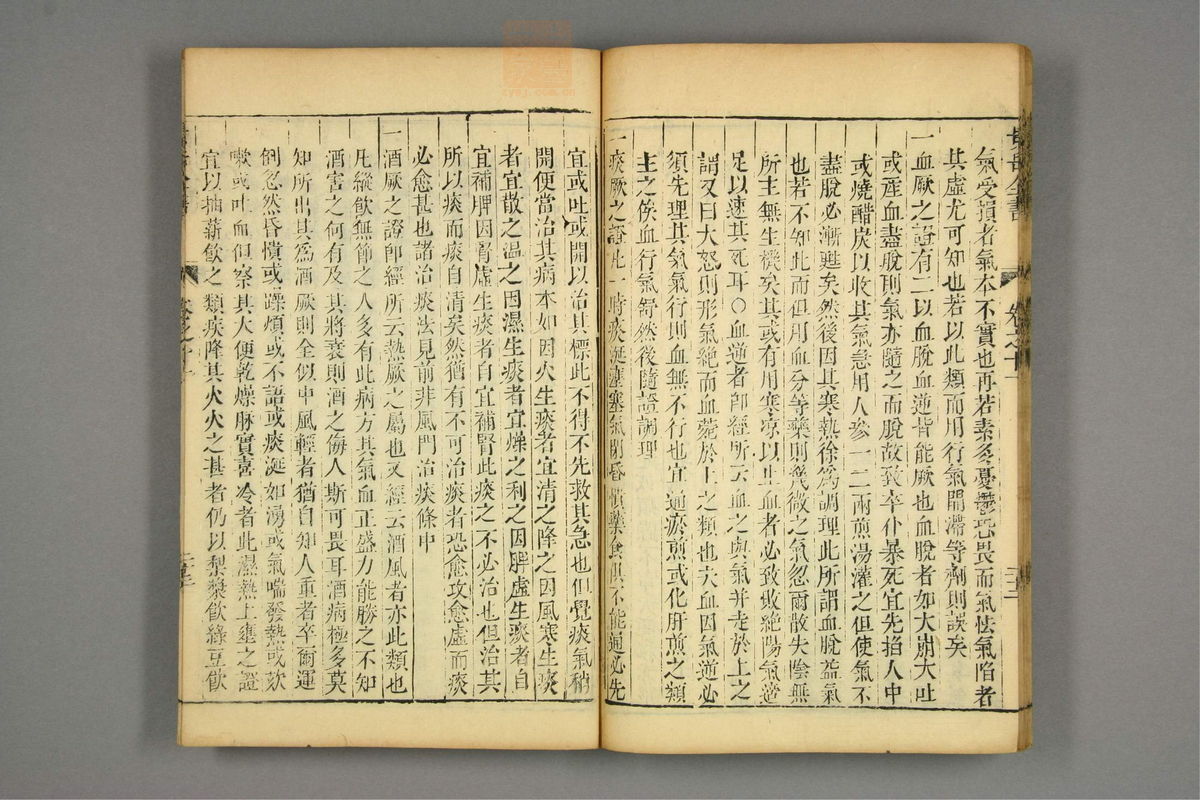 氣受損者氣本不實也再若素多憂鬱恐畏而氣怯氣陷者
其虛尤可知也若以此類而用行氣開滯等劑則誤矣
一血厥之證有二以血脫血逆皆能厥也血脫者如大崩大吐
或產血盡脫則氣亦隨之而脫故致卒仆暴死宜先掐人中
或燒醋炭以收其氣急用人參一二兩煎湯灌之但使氣不
盡脫必漸甦矣然後因其寒熱徐為調理此所謂血脫益氣
也若不知此而但用血分等藥則幾微之氣忽爾散失陰無
所主無生機矣其或有用寒凉以止血者必致敗絶陽氣適
足以速其死耳〇血逆者卽經所云血之與氣并走於上之
謂又曰大怒則形氣絶而血菀於上之類也夫血因氣逆必
須先理其氣氣行則血無不行也宜通瘀煎或化肝煎之類
主之俟血行氣舒然後隨證調理
一痰厥之證凡一時痰涎壅塞氣閉昏憒藥食俱不能通必先
宜或吐或開以治其標此不得不先救其急也但覺痰氣稍
開便當治其病本如因火生痰者宜清之降之因風寒生痰
者宜散之温之因濕生痰者宜燥之利之因脾虛生痰者自
宜補脾因腎虛生痰者自宜補腎此痰之不必治也但治其
所以痰而痰自清矣然猶有不可治痰者恐愈攻愈虛而痰
必愈甚也諸治痰法見前非風門治痰條中
一酒厥之證卽經所云熱厥之屬也又經云酒風者亦此類也
凡縱飲無節之人多有此病方其氣血正盛力能勝之不知
酒害之何有及其將衰則酒之侮人斯可畏耳酒病極多莫
知所出其為酒厥則全似中風輕者猶自知人重者卒爾運
倒忽然昏憒或躁煩或不語或痰涎如湧或氣喘發熱或欬
嗽或吐血但察其大便乾燥脉實喜冷者此濕熱上壅之證
宜以抽薪飲之類疾降其火火之甚者仍以梨漿飲綠豆飲